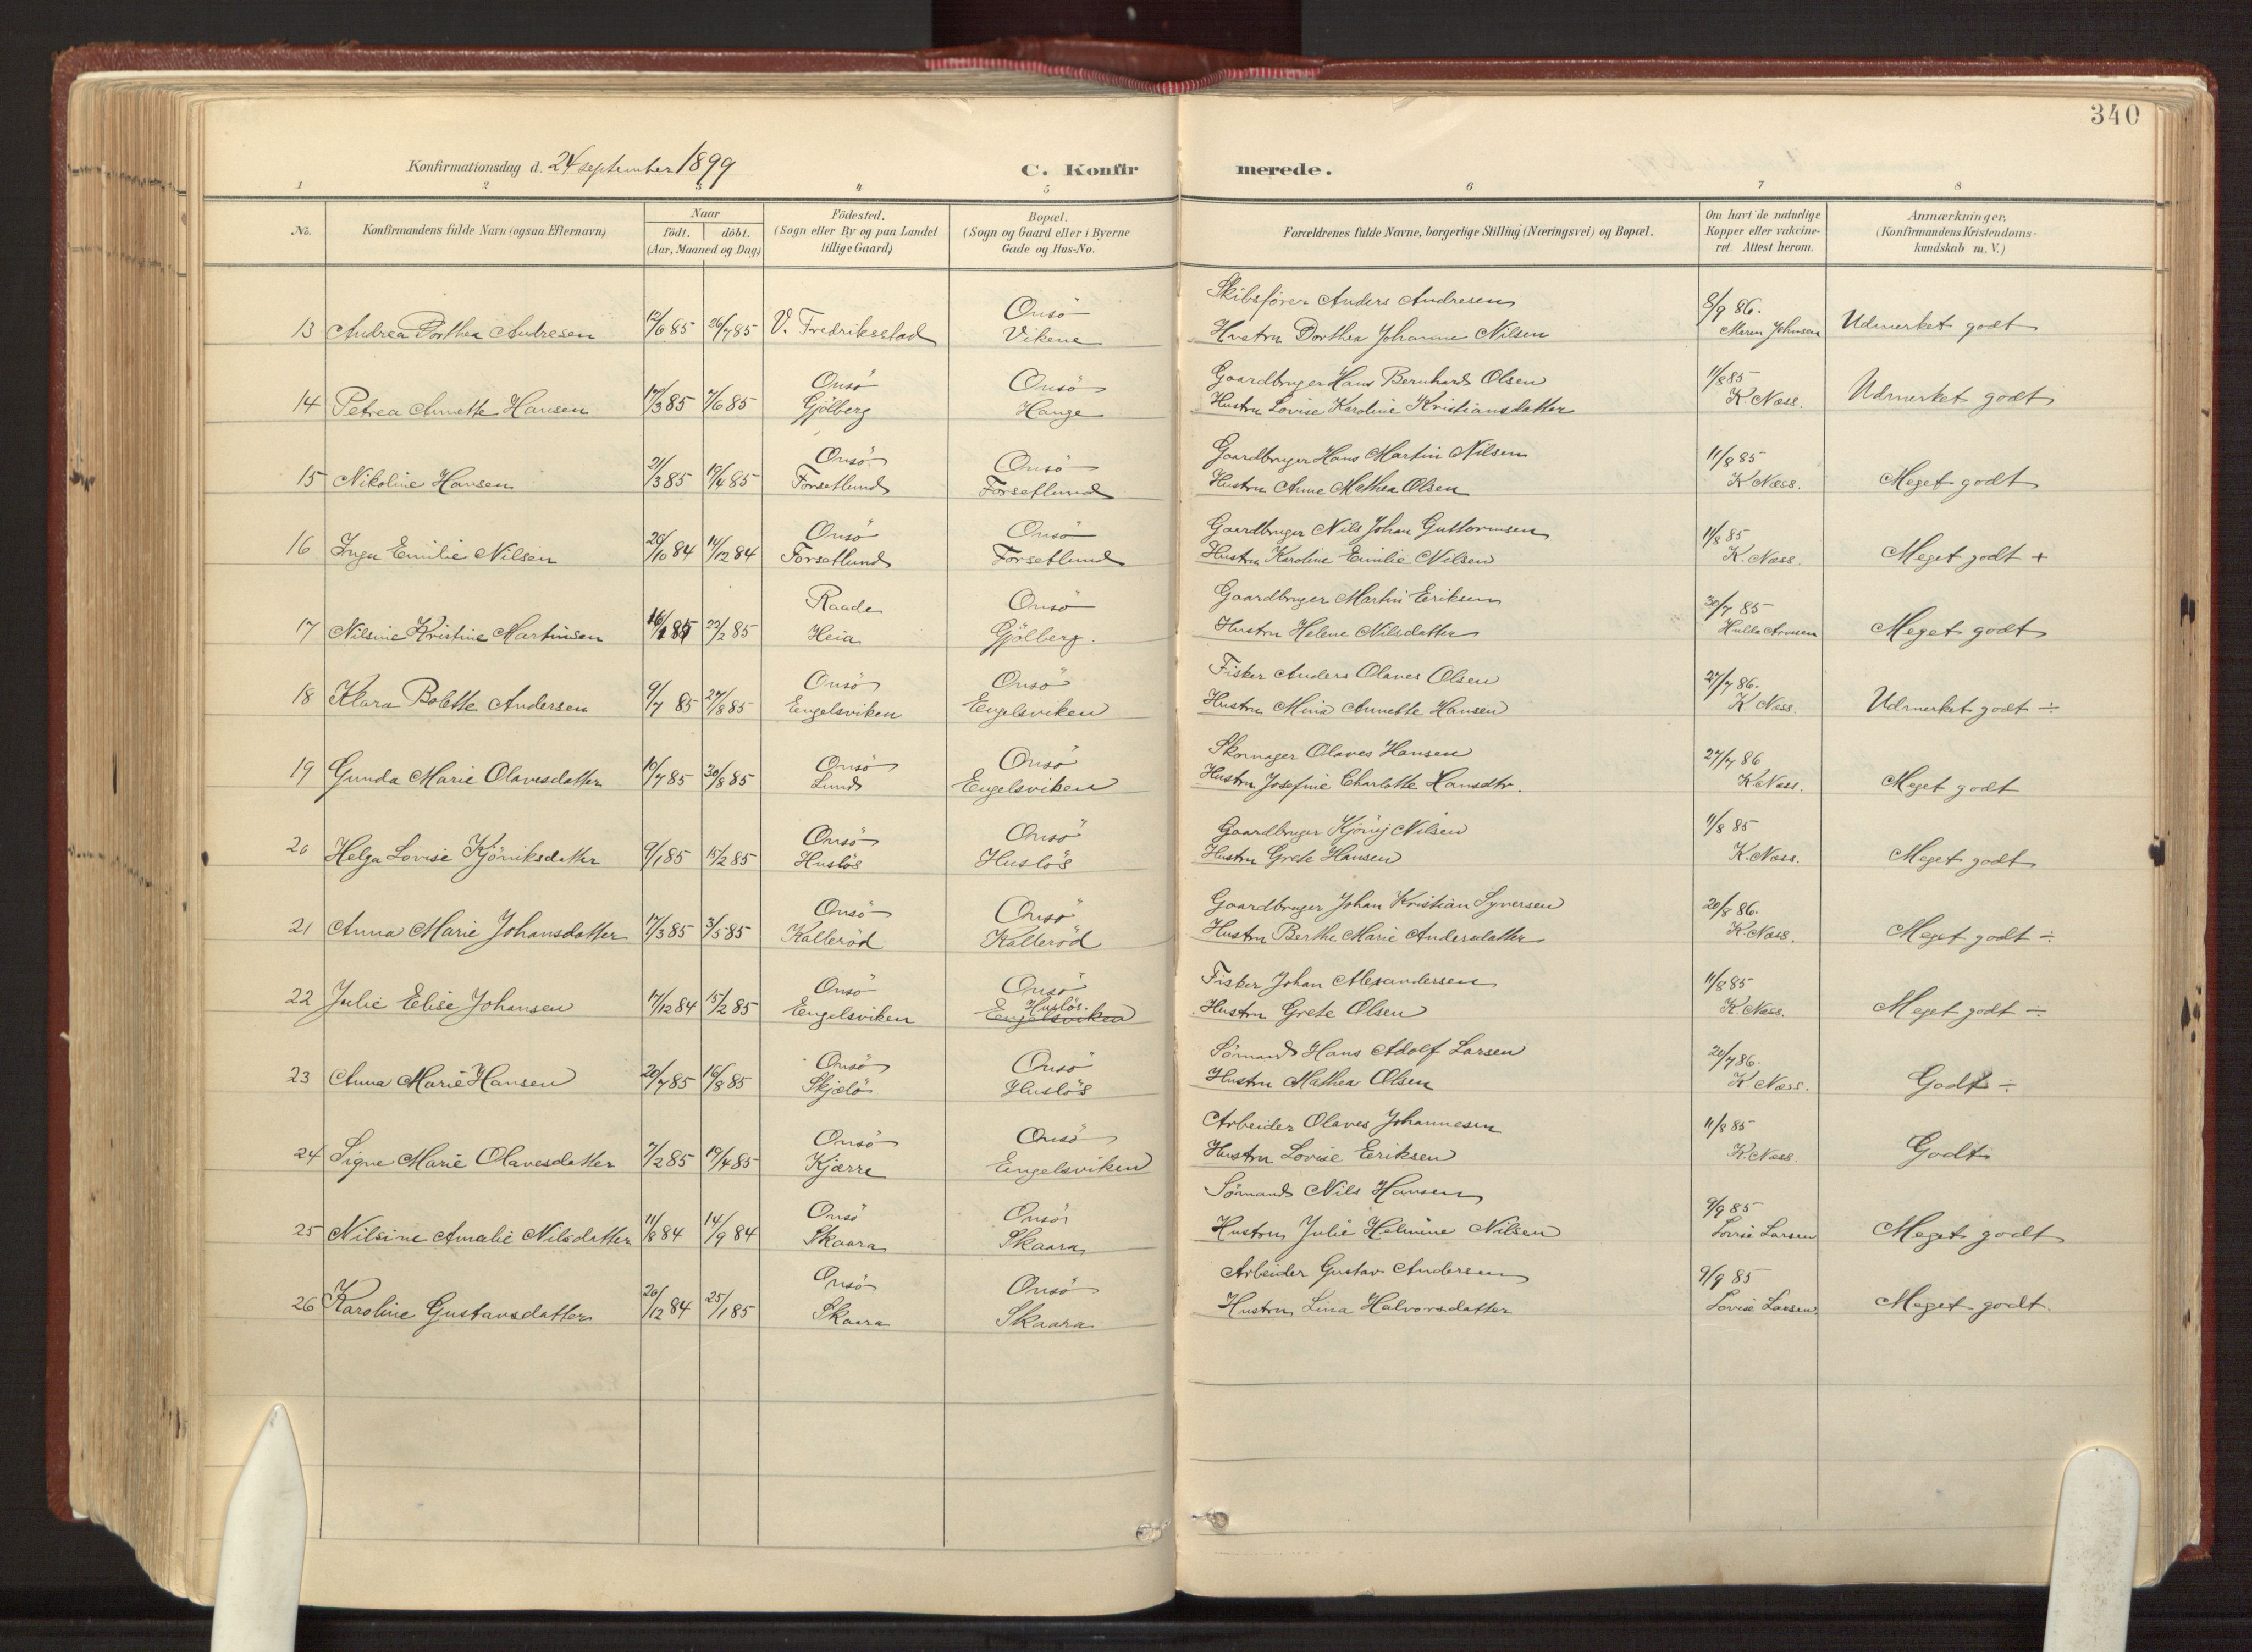 340
Konfirmationsdag d. 24 september 1899
C. Konfirmerede.
1 2 3 4 5 6 7 8
No. | Konfirmandens fulde Navn (ogsaa Efternavn) | Naar födt. döbt. (Aar, Maaned og Dag) | Födested. (Sogn eller By og paa Landet tillige Gaard) | Bopæl. (Sogn og Gaard eller i Byerne Gade og Hus-No. | Forældrenes fulde Navne, borgerlige Stilling (Næringsvei) og Bopæl. | Om havt de naturlige Kopper eller vakcineret. Attest herom. | Anmærkninger. (Konfirmandens Kristendomskundskab m. V.)
Onsö Skibsfører Anders Andresen 8/9 86.
13 Andrea Dorthea Andresen 12/6 85 26/7 85 V. Fredriksstad Vikene Hustru Dorthea Johanne Nilsen Maren Johnsen Udmerket godt
Onsö Onsö Gaardbruger Hans Bernhard Olsen 11/8 85
14 Petrea Annette Hansen 17/3 85 7/6 85 Gjölberg Hauge Hustru Lovise Karoline Kristiansdatter K. Næss. Udmerket godt
Onsö Onsö Gaardbruger Hans Martin Nilsen 11/8 85
15 Nikoline Hansen 21/3 85 19/4 85 Forsetlund Forsetlund Hustru Anne Mathea Olsen K Næss. Meget godt
Onsö Onsö Gaardbruger Nils Johan Guttormsen 11/8 85
16 Inga Emilie Nilsen 26/10 84 14/12 84 Forsetlund Forsetlund Hustru Karoline Emilie Nilsen K. Næss. Meget godt +
Raade Onsö Gaardbruger Martin Eriksen 30/7 85
17 Nilsine Kristine Martinsen 16/1 85 22/2 85 Heia Gjölberg. Hustru Helene Nilsdatter Hulda Arnesen Meget godt
Onsö Onsö Fisker Anders Olaves Olsen 27/7 86.
18 Klara Bolette Andersen 9/7 85 27/8 85 Engelsviken Engelsviken Hustru Mina Annette Hansen K Næss. Udmerket godt ÷
Onsö Onsö Skomager Olaves Hansen 27/7 86
19 Gunda Marie Olavesdatter 10/7 85 30/8 85 Lund Engelsviken Hustru Josefine Charlotte Hansdtr. K Næss. Meget godt
Onsö Onsö Gaardbruger Kjönig Nilsen 11/8 85
20 Helga Lovise Kjöniksdatter 9/1 85 15/2 85 Huslös Huslös Hustru Grete Hansen K. Næss. Meget godt
Onsö Onsö Gaardbruger Johan Kristian Syversen 20/8 86.
21 Anna Marie Johansdatter 17/3 85 3/5 85 Kalleröd Kalleröd Hustru Berthe Marie Andersdatter K. Næss. Meget godt ÷
Onsö Onsö Fisker Johan Alexandersen 11/8 85
22 Julie Elise Johansen 17/12 84 15/2 85 Engelsviken Huslös. Engelsviken Hustru Grete Olsen K. Næss. Meget godt ÷
Onsö Onsö Sömand Hans Adolf Larsen 20/7 86.
23 Anna Marie Hansen 20/7 85 16/8 85 Skjelö Huslös Hustru Mathea Olsen K Næss. Godt ÷
Onsö Onsö Arbeider Olaves Johannesen 11/8 85
24 Signe Marie Olavesdatter 7/2 85 19/4 85 Kjærre Engelsviken Hustru Lovise Eriksen K. Næss. Godt
Onsö Onsö Sömand Nils Hansen 9/9 85
25 Nilsine Amalie Nilsdatter 11/8 84 14/9 84 Skaara Skaara Hustru Julie Helmine Nilsen Lovise Larsen Meget godt
Onsö Onsö Arbeider Gustav Andersen 9/9 85
26 Karoline Gustavsdatter 26/12 84 25/1 85 Skaara Skaara Hustru Lina Halvorsdatter Lovise Larsen Meget godt.